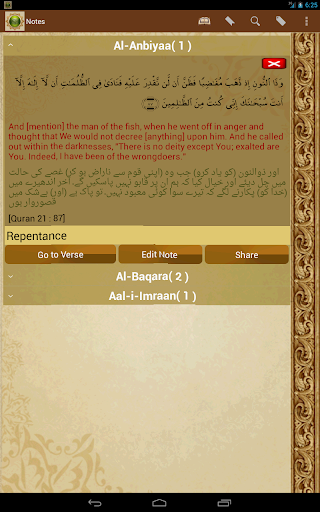 6:25
Notes
Al-Anbiyaa( 1 )
وَذَا ٱلنُّونِ إِذ ذَّهَبَ مُغَٰضِبًا فَظَنَّ أَن لَّن نَّقْدِرَ عَلَيْهِ فَنَادَىٰ فِى ٱلظُّلُمَٰتِ أَن لَّآ إِلَٰهَ إِلَّآ
أَنتَ سُبْحَٰنَكَ إِنِّى كُنتُ مِنَ ٱلظَّٰلِمِينَ
And [mention] the man of the fish, when he went off in anger and
thought that We would not decree [anything] upon him. And he called
out within the darknesses, "There is no deity except You; exalted are
You. Indeed, I have been of the wrongdoers."
اور ذوالنون (کو یاد کرو) جب وہ (اپنی قوم سے ناراض ہو کر) غصے کی حالت
میں چل دیئے اور خیال کیا کہ ہم ان پر قابو نہیں پاسکیں گے۔ آخر اندھیرے میں
(خدا کو) پکارنے لگے کہ تیرے سوا کوئی معبود نہیں۔ تو پاک ہے (اور) بےشک میں
قصوروار ہوں
[Quran 21 : 87]
Repentance
Go to Verse
Edit Note
Share
Al-Baqara( 2 )
Aal-i-Imraan( 1 )